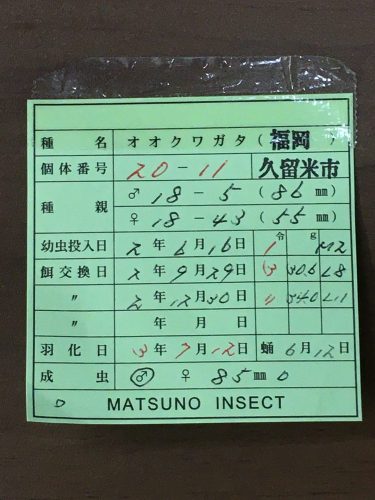 種 名 オオクワガタ ( 福岡 )
個体番号 20 - 11 久留米市
種 親 ♂ 18 - 5 ( 86 mm)
♀ 18 - 43 ( 55 mm)
令 g
幼虫投入日 2 年 6 月 16 日 1
餌交換日 2 年 9 月 29 日 3 30.6 L8
〃 2 年 12 月 30 日 〃 34.0 L11
〃 年 月 日
羽化日 3 年 7 月 12 日 蛹 6 月 12 日
成 虫 ♂ ♀ 85 mm
MATSUNO INSECT